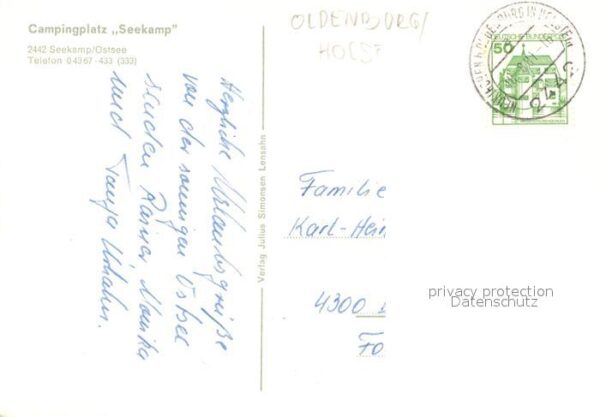 Campingplatz „Seekamp“
2442 Seekamp/Ostsee
Telefon 04367 - 433 (333)
OLDENBURG/
HOLST
Herzliche Urlaubsgrüße
von der sonnigen Ostsee
senden Rainer Monika
und Tanja
Verlag Julius Simonsen Lensahn
50
DEUTSCHE BUNDESPOST
2442
Familie
Karl-Hein
4300
Fo
privacy protection
Datenschutz